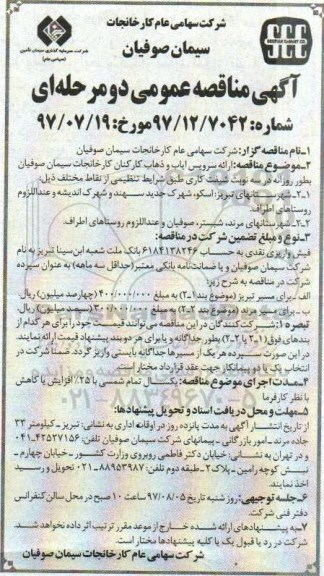 شرکت سهامی عام کارخانجات
سیمان صوفیان
آگهی مناقصه عمومی دو مرحله‌ای
شماره: ۹۷/۱۲/۷۰۴۲ مورخ: ۹۷/۰۷/۱۹
۱-نام مناقصه گزار: شرکت سهامی عام کارخانجات سیمان صوفیان
۲-موضوع مناقصه: ارائه سرویس ایاب و ذهاب کارکنان کارخانجات سیمان صوفیان
بطور روزانه در سه نوبت شیفت کاری طبق شرایط تنظیمی از نقاط مختلف ذیل:
۱-۲-شهرستانهای تبریز، اسکو، شهرک جدید سهند و شهرک اندیشه و عنداللزوم
روستاهای اطراف.
۲-۲-شهرستانهای مرند، شبستر، صوفیان و عنداللزوم روستاهای اطراف.
۳-نوع و مبلغ تضمین شرکت در مناقصه:
فیش واریز نقدی به حساب ۶۱۸۴۱۳۸۲۴۶ بانک ملت شعبه ابن‌سینا تبریز به نام
شرکت سیمان صوفیان و یا ضمانت‌نامه بانکی معتبر (حداقل سه ماهه) به عنوان سپرده
شرکت در مناقصه به شرح زیر:
الف-برای مسیر تبریز (موضوع بند ۱-۲) به مبلغ ۴۰۰/۰۰۰/۰۰۰ (چهارصد میلیون) ریال.
ب- برای مسیر مرند (موضوع بند ۲-۲) به مبلغ ۳۰۰/۰۰۰/۰۰۰ (سیصد میلیون) ریال.
تبصره ۱: شرکت کنندگان در این مناقصه می‌توانند قیمت خود را برای هر کدام از
بندهای فوق (۱-۲ یا ۲-۲) بطور جداگانه و یا برای هر دو بند پیشنهاد قیمت ارائه نمایند.
در این صورت سپرده هر یک از مسیرها جداگانه بایستی واریز گردد. ضمناً شرکت در
انتخاب یک یا دو پیمانکار جهت عقد قرارداد مختار است.
۴-مدت اجرای موضوع مناقصه: یکسال تمام شمسی با ۲۵٪ افزایش یا کاهش
با نظر کارفرما
۵-مهلت و محل دریافت اسناد و تحویل پیشنهادها:
از تاریخ انتشار آگهی به مدت پانزده روز در اوقات اداری به نشانی: تبریز - کیلومتر ۳۳
جاده مرند-امور بازرگانی-پیمانهای شرکت سیمان صوفیان تلفن: ۴۲۵۷۱۵۶-۰۴۱
و در تهران به نشانی: خیابان دکتر فاطمی روبروی وزارت کشور-خیابان چهارم-
نبش کوچه رامین-پلاک ۲-طبقه دوم تلفن: ۸۸۹۵۳۹۸۷-۰۲۱ تحویل و رسید
اخذ نمایند.
۶-جلسه توجیهی: روز شنبه تاریخ ۹۷/۰۸/۰۵ ساعت ۱۰ صبح در محل سالن کنفرانس
دفتر فنی شرکت.
۷-به پیشنهادهای ارائه شده خارج از موعد مقرر ترتیب اثر داده نخواهد شد.
شرکت در رد یا قبول یک یا کلیه پیشنهادها مختار است.
شرکت سهامی عام کارخانجات سیمان صوفیان